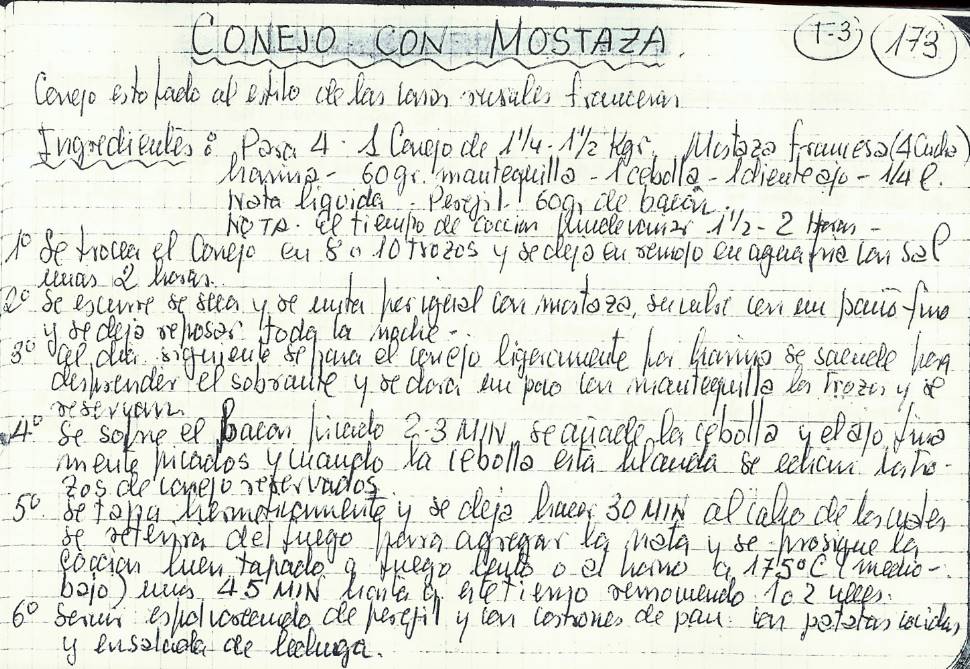 CONEJO CON MOSTAZA. T-3 173
Conejo estofado al estilo de las casas rurales francesas
Ingredientes: Para 4 · 1 Conejo de 1 1/4 - 1 1/2 Kgr. Mostaza francesa (4 Cucha)
harina - 60 gr. mantequilla - 1 cebolla - 1 diente ajo - 1/4 l.
Nata liquida - Perejil - 60 gr de bacón.
NOTA. El tiempo de coccion puede variar 1 1/2 - 2 Horas -
1º Se trocea el Conejo en 8 o 10 trozos y se deja en remojo en agua fria con sal
unas 2 horas.
2º Se escurre se seca y se unta por igual con mostaza, se cubre con un paño fino
y se deja reposar toda la noche -
3º al dia siguiente se pasa el conejo ligeramente por harina se sacude para
desprender el sobrante y se dora un poco con mantequilla los trozos y se
reservan.
4º Se sofrie el bacon picado 2-3 MIN, se añade la cebolla y el ajo fina
mente picados y cuando la cebolla está blanda se echan los tro-
zos de conejo reservados.
5º Se tapa hermeticamente y se deja hacer 30 MIN al cabo de los cuales
se retira del fuego para agregar la nata y se prosigue la
cocción buen tapado a fuego lento o al horno a 175ºC (medio-
bajo) unos 45 MIN hasta este tiempo removiendo 1 o 2 veces.
6º Servir espolvoreando de perejil y con costrones de pan. con patatas cocidas
y ensalada de lechuga.